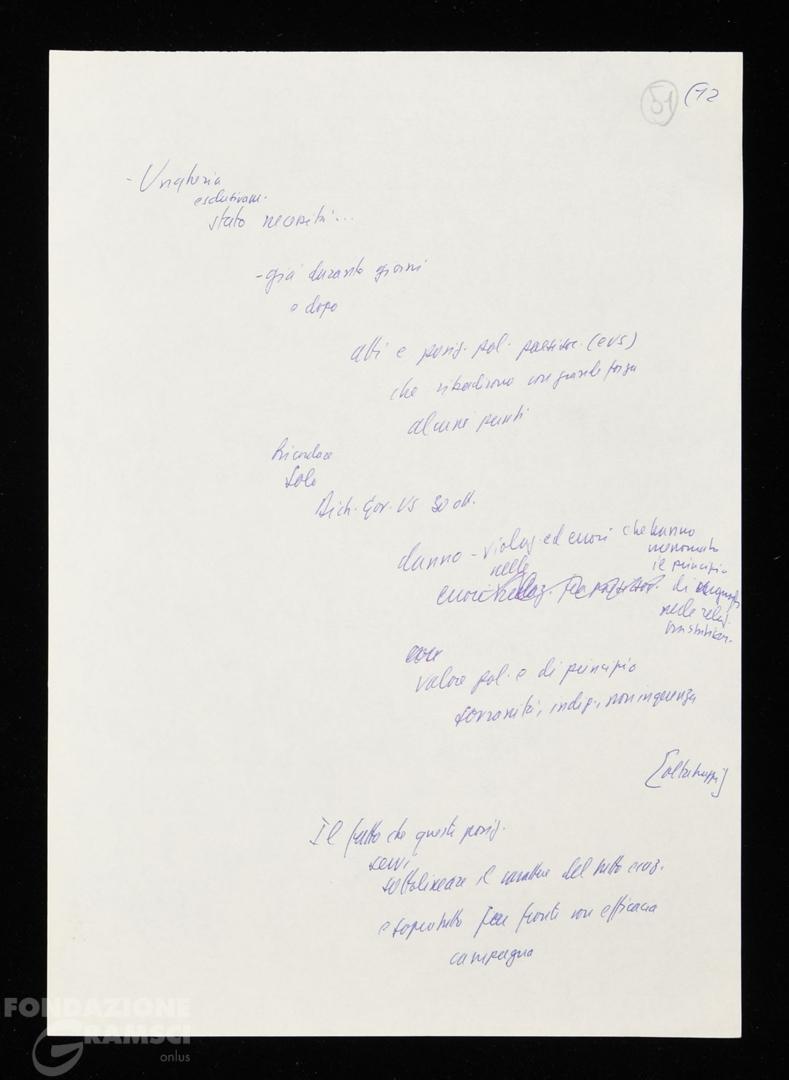 51 (12
- Ungheria
esclusivam.
stato necessità...
- già durante giorni
e dopo
atti e posiz. pol. (EVS)
che ribadirono con grande forza
alcuni punti
Ricordare
solo
Dich. Gov. US 30 ott.
danno - violaz. ed errori che hanno
nelle menomato
errori il principio
di
nelle relaz.
valore pol. e di principio
sovranità, indip., non ingerenza
[altri
Il fatto che queste posiz.
servì
sottolineare il carattere del tutto
e soprattutto far fronte con efficacia
campagna
FONDAZIONE
GRAMSCI
onlus